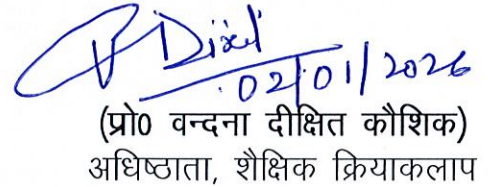 V Dixit
02/01/2026
(प्रो0 वन्दना दीक्षित कौशिक)
अधिष्ठाता, शैक्षिक क्रियाकलाप